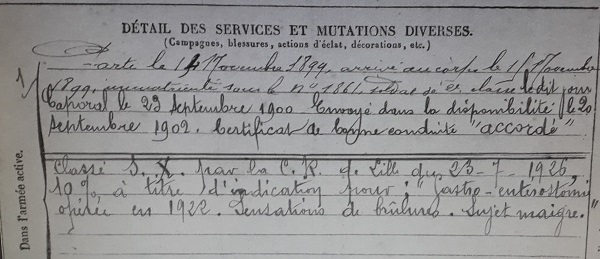 DÉTAIL DES SERVICES ET MUTATIONS DIVERSES.
(Campagnes, blessures, actions d'éclat, décorations, etc.)
Parti le 14 Novembre 1899, arrivé au corps le 15 Novembre
1899, immatriculé sous le No 1861. soldat de 2e classe ledit jour
Caporal le 23 Septembre 1900. Envoyé dans la disponibilité le 20
Septembre 1902. Certificat de bonne conduite "accordé"
Classé S. X. par la C. R. de Lille du 23-7-1926,
10% à titre d'indication pour: "gastro-enterostomie
opérée en 1922. Sensations de brûlures. Sujet maigre."
Dans l'armée active.